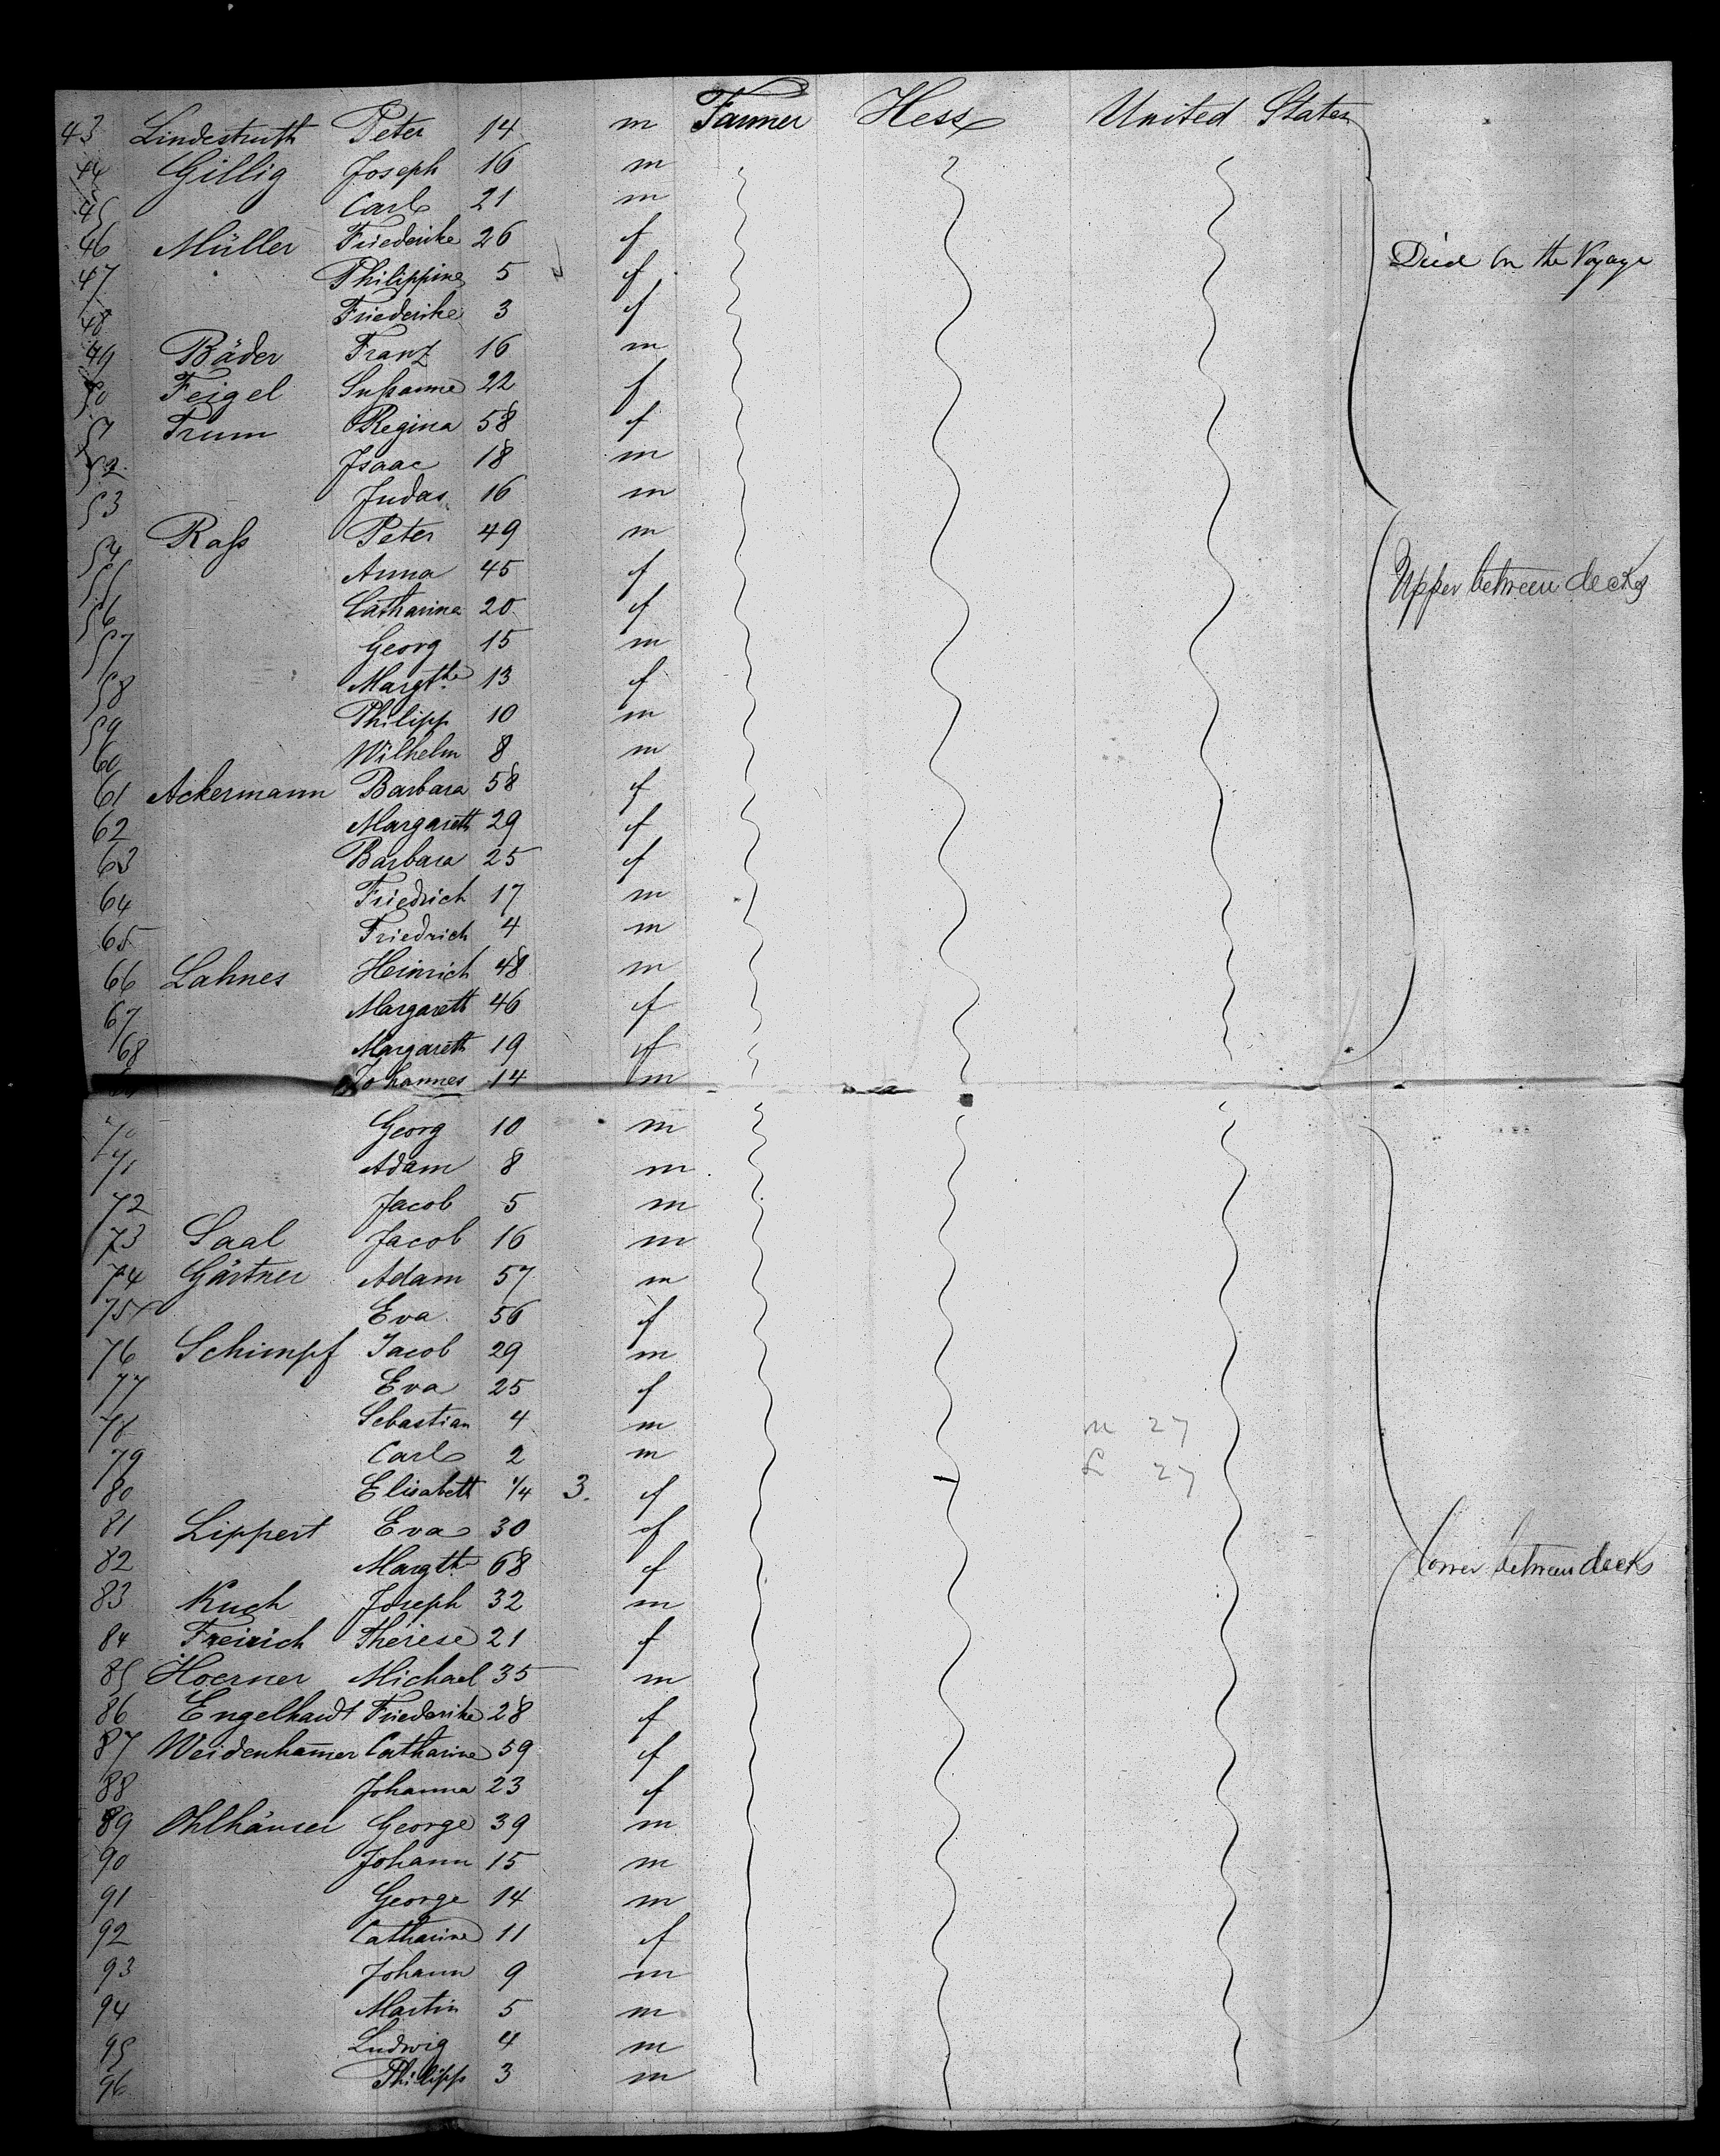 43 Lindestruth Peter 14 m Farmer Hess United States
44 Gillig Joseph 16 m
45 Carl 21 m
46 Müller Friederike 26 f
Died on the Voyage
47 Philippine 5 f
48 Friederike 3 f
49 Bäder Franz 16 m
50 Feigel Sußanne 22 f
51 Trum Regina 58 f
52 Isaac 18 m
53 Judas 16 m
54 Raß Peter 49 m
55 Anna 45 f
Upper between decks
56 Catharina 20 f
57 Georg 15 m
58 Margthe 13 f
59 Philipp 10 m
60 Wilhelm 8 m
61 Ackermann Barbara 58 f
62 Margareth 29 f
63 Barbara 25 f
64 Friedrich 17 m
65 Friedrich 4 m
66 Lahnes Heinrich 48 m
67 Margareth 46 f
68 Margareth 19 f
Johannes 14 m
70 Georg 10 m
71 Adam 8 m
72 Jacob 5 m
73 Saal Jacob 16 m
74 Gärtner Adam 57 m
75 Eva 56 f
76 Schimpf Jacob 29 m
77 Eva 25 f
78 Sebastian 4 m
m 27
79 Carl 2 m
L 27
80 Elisabeth 1/4 3. f
81 Lippert Eva 30 f
82 Margth 68 f
lower between decks
83 Kuch Joseph 32 m
84 Freirich Therese 21 f
85 Hoerner Michael 35 m
86 Engelhardt Friederike 28 f
87 Weidenhamer Catharine 59 f
88 Johanna 23 f
89 Ohlhäuser George 39 m
90 Johann 15 m
91 George 14 m
92 Catharine 11 f
93 Johann 9 m
94 Martin 5 m
95 Ludwig 4 m
96 Philipp 3 m